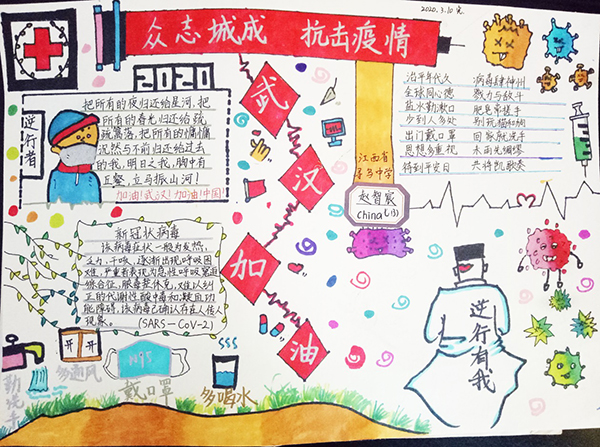 2020.3.10完
众志城成 抗击疫情
2020
逆行者
把所有的夜归还给星河,把
所有的春光归还给疏
疏篱落,把所有的慵慵
沉然与不前归还给过去
的我,明日之我,胸中有
丘壑,立马振山河!
加油!武汉!加油!中国!
武
汉
加
油
江西省
寻乌中学
赵智宸
China
治平年代久 病毒肆神州
全球同心德 戮力与敌斗
盐水勤漱口 肥皂常搓手
少到人多处
出门戴口罩 回家就洗手
思想多重视 未雨先绸缪
待到平安日 共将凯歌奏
新冠状病毒
该病毒症状一般为发热、
乏力、干咳、逐渐出现呼吸困
难,严重者表现为急性呼吸窘迫
综合征、脓毒症休克、难以纠
正的代谢性酸中毒和凝血功
能障碍,该病毒已确认存在人传人
现象。 (SARS-CoV-2)
勤洗手
开 开
多通风
N95
戴口罩
多喝水
逆行有我